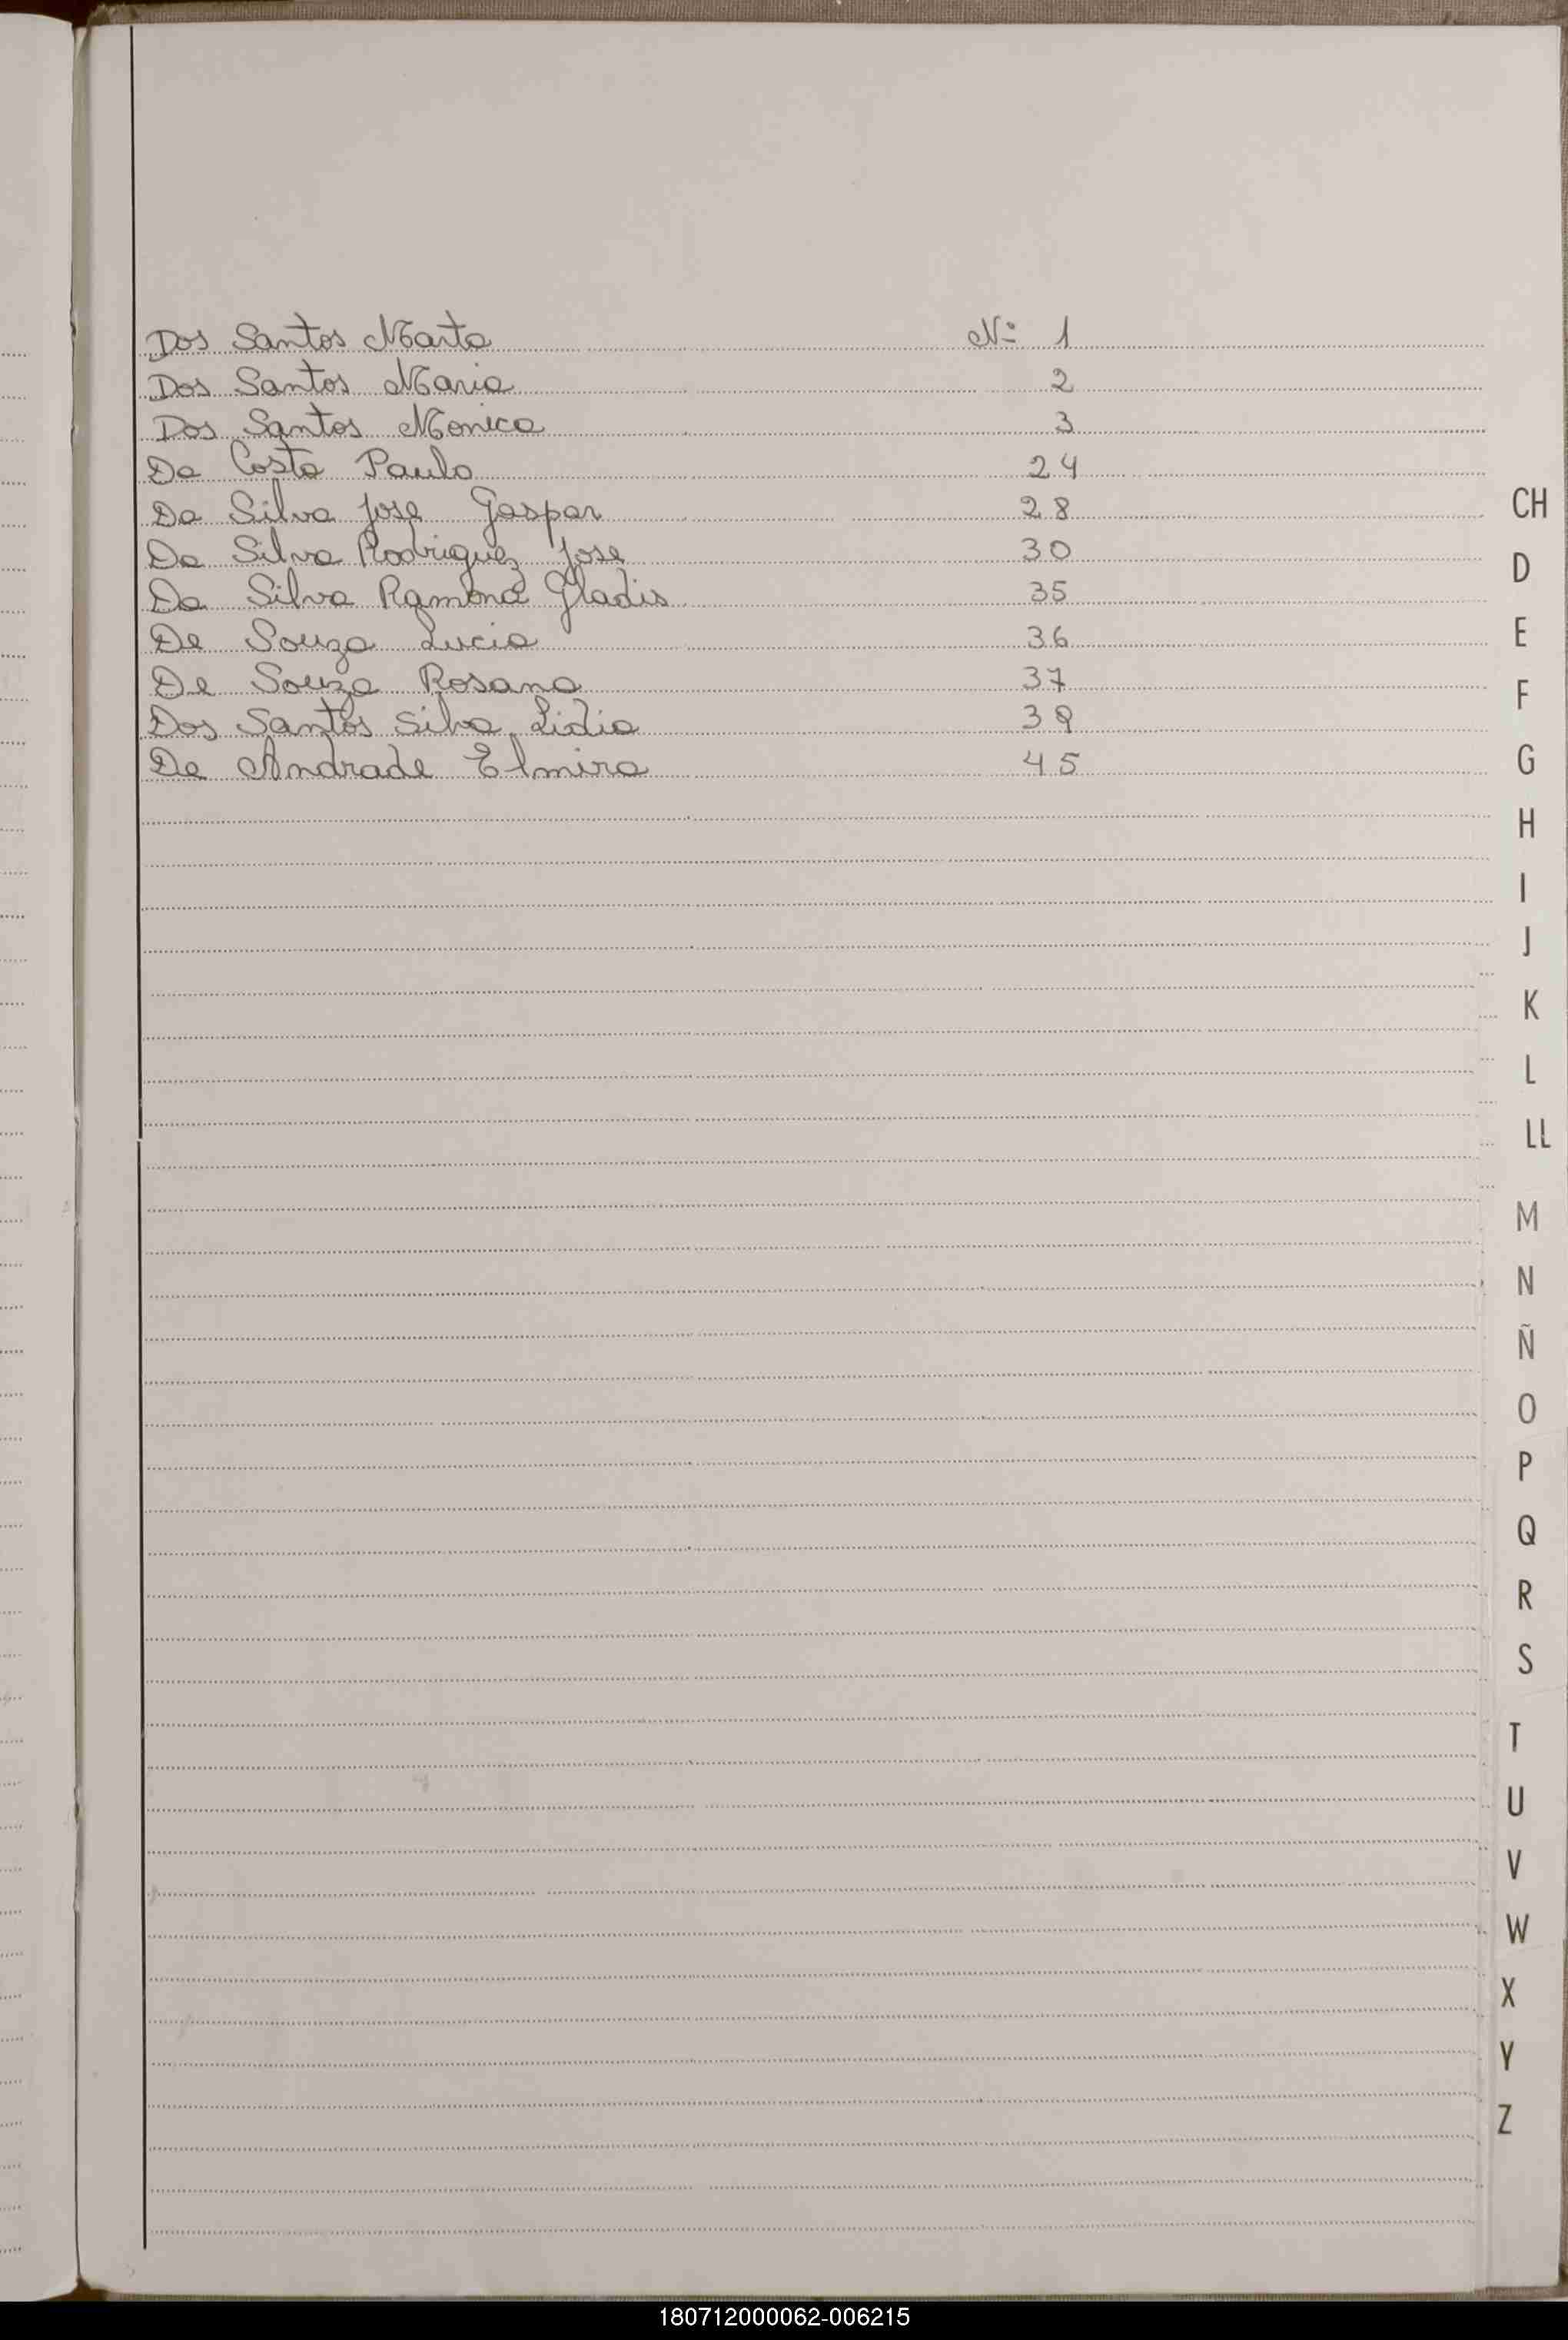 Dos Santos Marta Nº 1
Dos Santos Maria 2
Dos Santos Monica 3
Da Costa Paula 24
Da Silva Jose Gaspar 28
Da Silva Rodriguez Jose 30
Da Silva Ramona Gladis 35
De Souza Lucia 36
De Souza Rosana 37
Dos Santos Silva Lidia 39
De Andrade Elmira 45
CH
D
E
F
G
H
I
J
K
L
LL
M
N
Ñ
O
P
Q
R
S
T
U
V
W
X
Y
Z
180712000062-006215